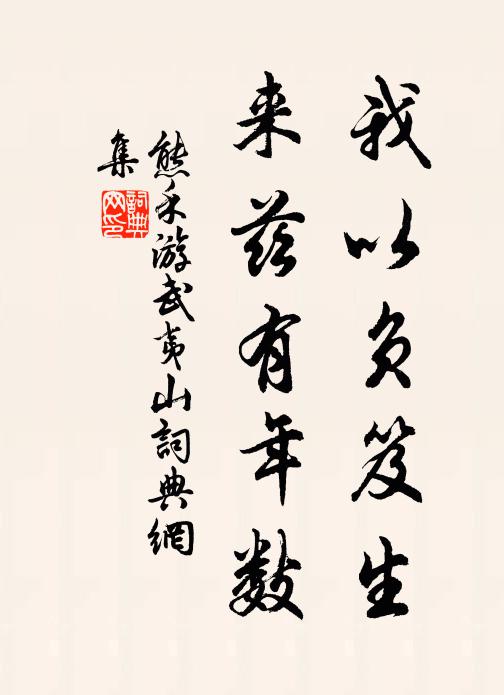 我以负笈生
来兹有年数
熊禾游武夷山詞典網
集
詞典网印